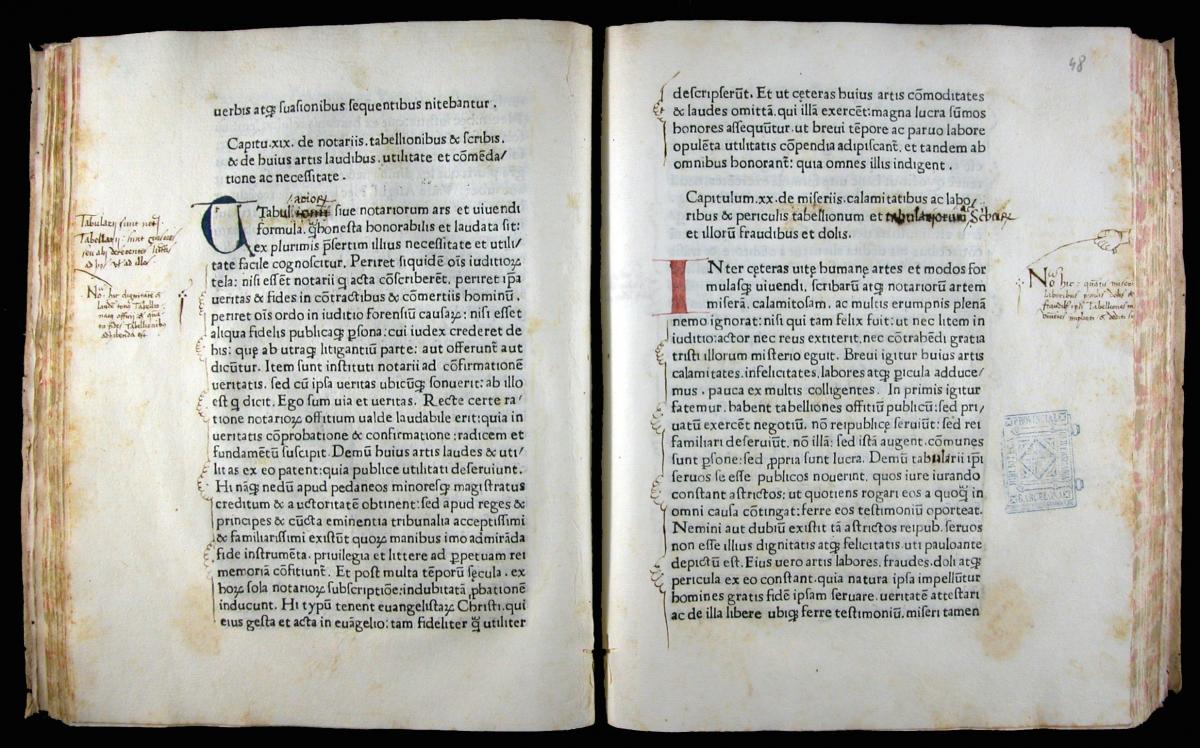 uerbis atqꝫ suasionibus sequentibus nitebantur.
Capitu.xix. de notariis.tabellionibus & scribis.
& de huius artis laudibus.utilitate et cōmēda/
tione ac necessitate.
Tabul siue notariorum ars et uiuendi
formula. honesta honorabilis et laudata sit:
ex plurimis p̄sertim illius necessitate et utili/
tate facile cognoscitur. Periret siquidē oīs iuditioꝝ
tela: nisi essēt notarii q acta cōscriberēt. periret ip̄a
ueritas & fides in cōtractibus & cōmertiis hominū.
periret oīs ordo in iuditio forensiū causaꝝ: nisi esset
aliqua fidelis publicaqꝫ ꝑsona: cui iudex crederet de
his: quę ab utraqꝫ litigantiū parte: aut offerunt aut
dicūtur. Item sunt instituti notarii ad cōfirmationē
ueritatis. sed cū ipsa ueritas ubicūqꝫ sonuerit: ab illo
est q dicit. Ego sum uia et ueritas. Recte certe ra/
tione notarioꝝ offitium ualde laudabile erit: quia in
ueritatis cōprobatione & confirmatione: radicem et
fundamētū suscipit. Demū huius artis laudes & uti/
litas ex eo patent: quia publice utilitati deseruiunt.
Hi nāqꝫ nedū apud pedaneos minoresqꝫ magistratus
creditum & auctoritatē obtinent: sed apud reges &
principes & cūcta eminentia tribunalia acceptissimi
& familiarissimi existūt quoꝝ manibus imo admirāda
fide instrumēta. priuilegia et littere ad ꝑpetuam rei
memoriā cōfitiunt̄. Et post multa tēporū secula. ex
hoꝝ sola notarioꝝ subscriptiōe: indubitatā ꝓbationē
inducunt. Hi typū tenent euangelistaꝝ Christi. qui
eius gesta et acta in euāgelio: tam fideliter utiliter
Tabularii sunt
Tabellarii: sunt
48
descripserūt. Et ut cęteras huius artis cōmoditates
& laudes omittā. qui illā exercēt: magna lucra sūmos
honores assequūtur. ut breui tēpore ac paruo labore
opulēta utilitatis cōpendia adipiscant̄. et tandem ab
omnibus honorant̄: quia omnes illis indigent.
Capitulum.xx.de miseriis.calamitatibus ac labo/
ribus & periculis tabellionum et
et illorū fraudibus et dolis.
INter cęteras uitę humanę artes et modos for
mulasqꝫ uiuendi. scribarū atqꝫ notariorum artem
miserā. calamitosam. ac multis erumpnis plenā
nemo ignorat: nisi qui tam felix fuit: ut nec litem in
iuditio: actor nec reus extiterit. nec cōtrahēdi gratia
tristi illorum misterio eguit. Breui igitur huius artis
calamitates. infelicitates. labores atqꝫ ꝑicula adduce/
mus. pauca ex multis colligentes. In primis igitur
fatemur. habent tabelliones offitiū publicū: sed pri/
uatū exercēt negotiū. nō reipublicę seruiūt: sed rei
familiari deseruiūt. nō illā: sed istā augent. cōmunes
sunt ꝑsone: sed ꝓpria sunt lucra. Demū tabularii ip̄i
seruos se esse publicos nouerint. quos iure iurando
constant astrictos: ut quotiens rogari eos a quoqꝫ in
omni causa cōtingat: ferre eos testimoniū oporteat.
Nemini aut dubiū existit tā astrictos reipub. seruos
non esse illius dignitatis atqꝫ felicitatis. uti pauloante
depictū est. Eius uero artis labores. fraudes. doli atqꝫ
pericula ex eo constant. quia natura ipsa impellūtur
homines gratis fidē ipsam seruare. ueritatē attestari
ac de illa libere ubiqꝫ ferre testimoniū. miseri tamen
BARCELONA